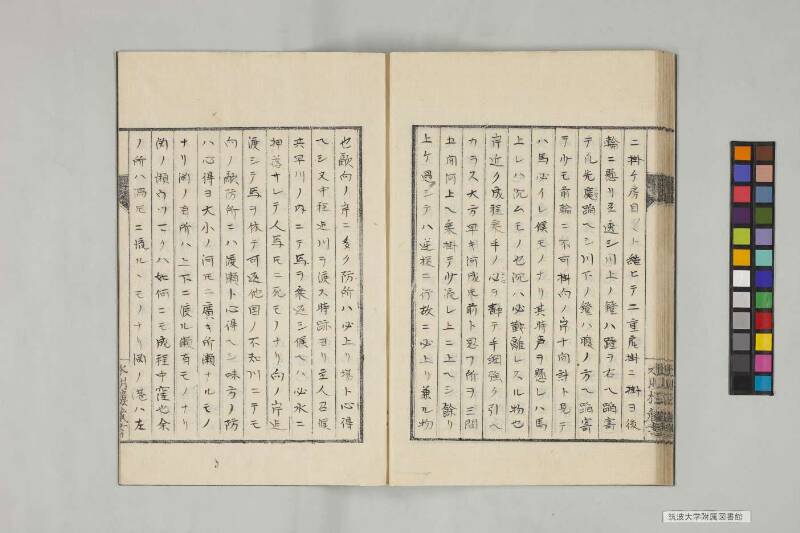 ニ掛ケ房目ト縫ヒテ二重腹掛ニ掛ヲ後
輪ニ懸リ至迄シ川上ノ鐙ハ鐙ヲ右ヘ踏寄
テ乢先ヘ踏ヘシ川下ノ鐙ハ腹ノ方ヘ踏寄
テ少モ前輪ニ不可掛向ノ岸十間計ト見テ
ハ馬必イレ候モノナリ其時声ヲ懸レハ馬
上レハ沉ムモノ也沉ハ必鞍離レスル物也
岸近ク成程乗手ノ心ヲ静テ手綱強ク引ヘ
カラス大方平キ河成先前ト思フ所ヲ三間
五間河上ヘ乗掛テ少流レ上ニ上ヘシ餘リ
上ケ過シテハ逆桜ニ行故ニ必上リ兼ル物
也敵向ノ岸ニ多ク防所ハ必上リ場ト心得
ヘシ又中程迄川ヲ渡ス時跡ヨリ主人召候
共早川ノ内ニテ馬ヲ乗返シ候ヘハ必水ニ
押落サレテ人馬モニ死モノナリ向ノ岸迄
渡シテ馬ヲ休テ可返他国ノ不知川ニテモ
向ノ敵防所ニハ渡瀬ト心得ヘシ味方ノ防
ハ心得ヨ大小ノ河モニ廣キ所瀬ナルモノ
ナリ渕ノ有所ハ上下ニ渡ル瀬有モノナリ
渕ノ瀬ハ如何ニモ成程中窪也余
ノ所ハ渦モニ渡ルヽモノナリ渕ノ巻ハ左
筑波大学附属図書館